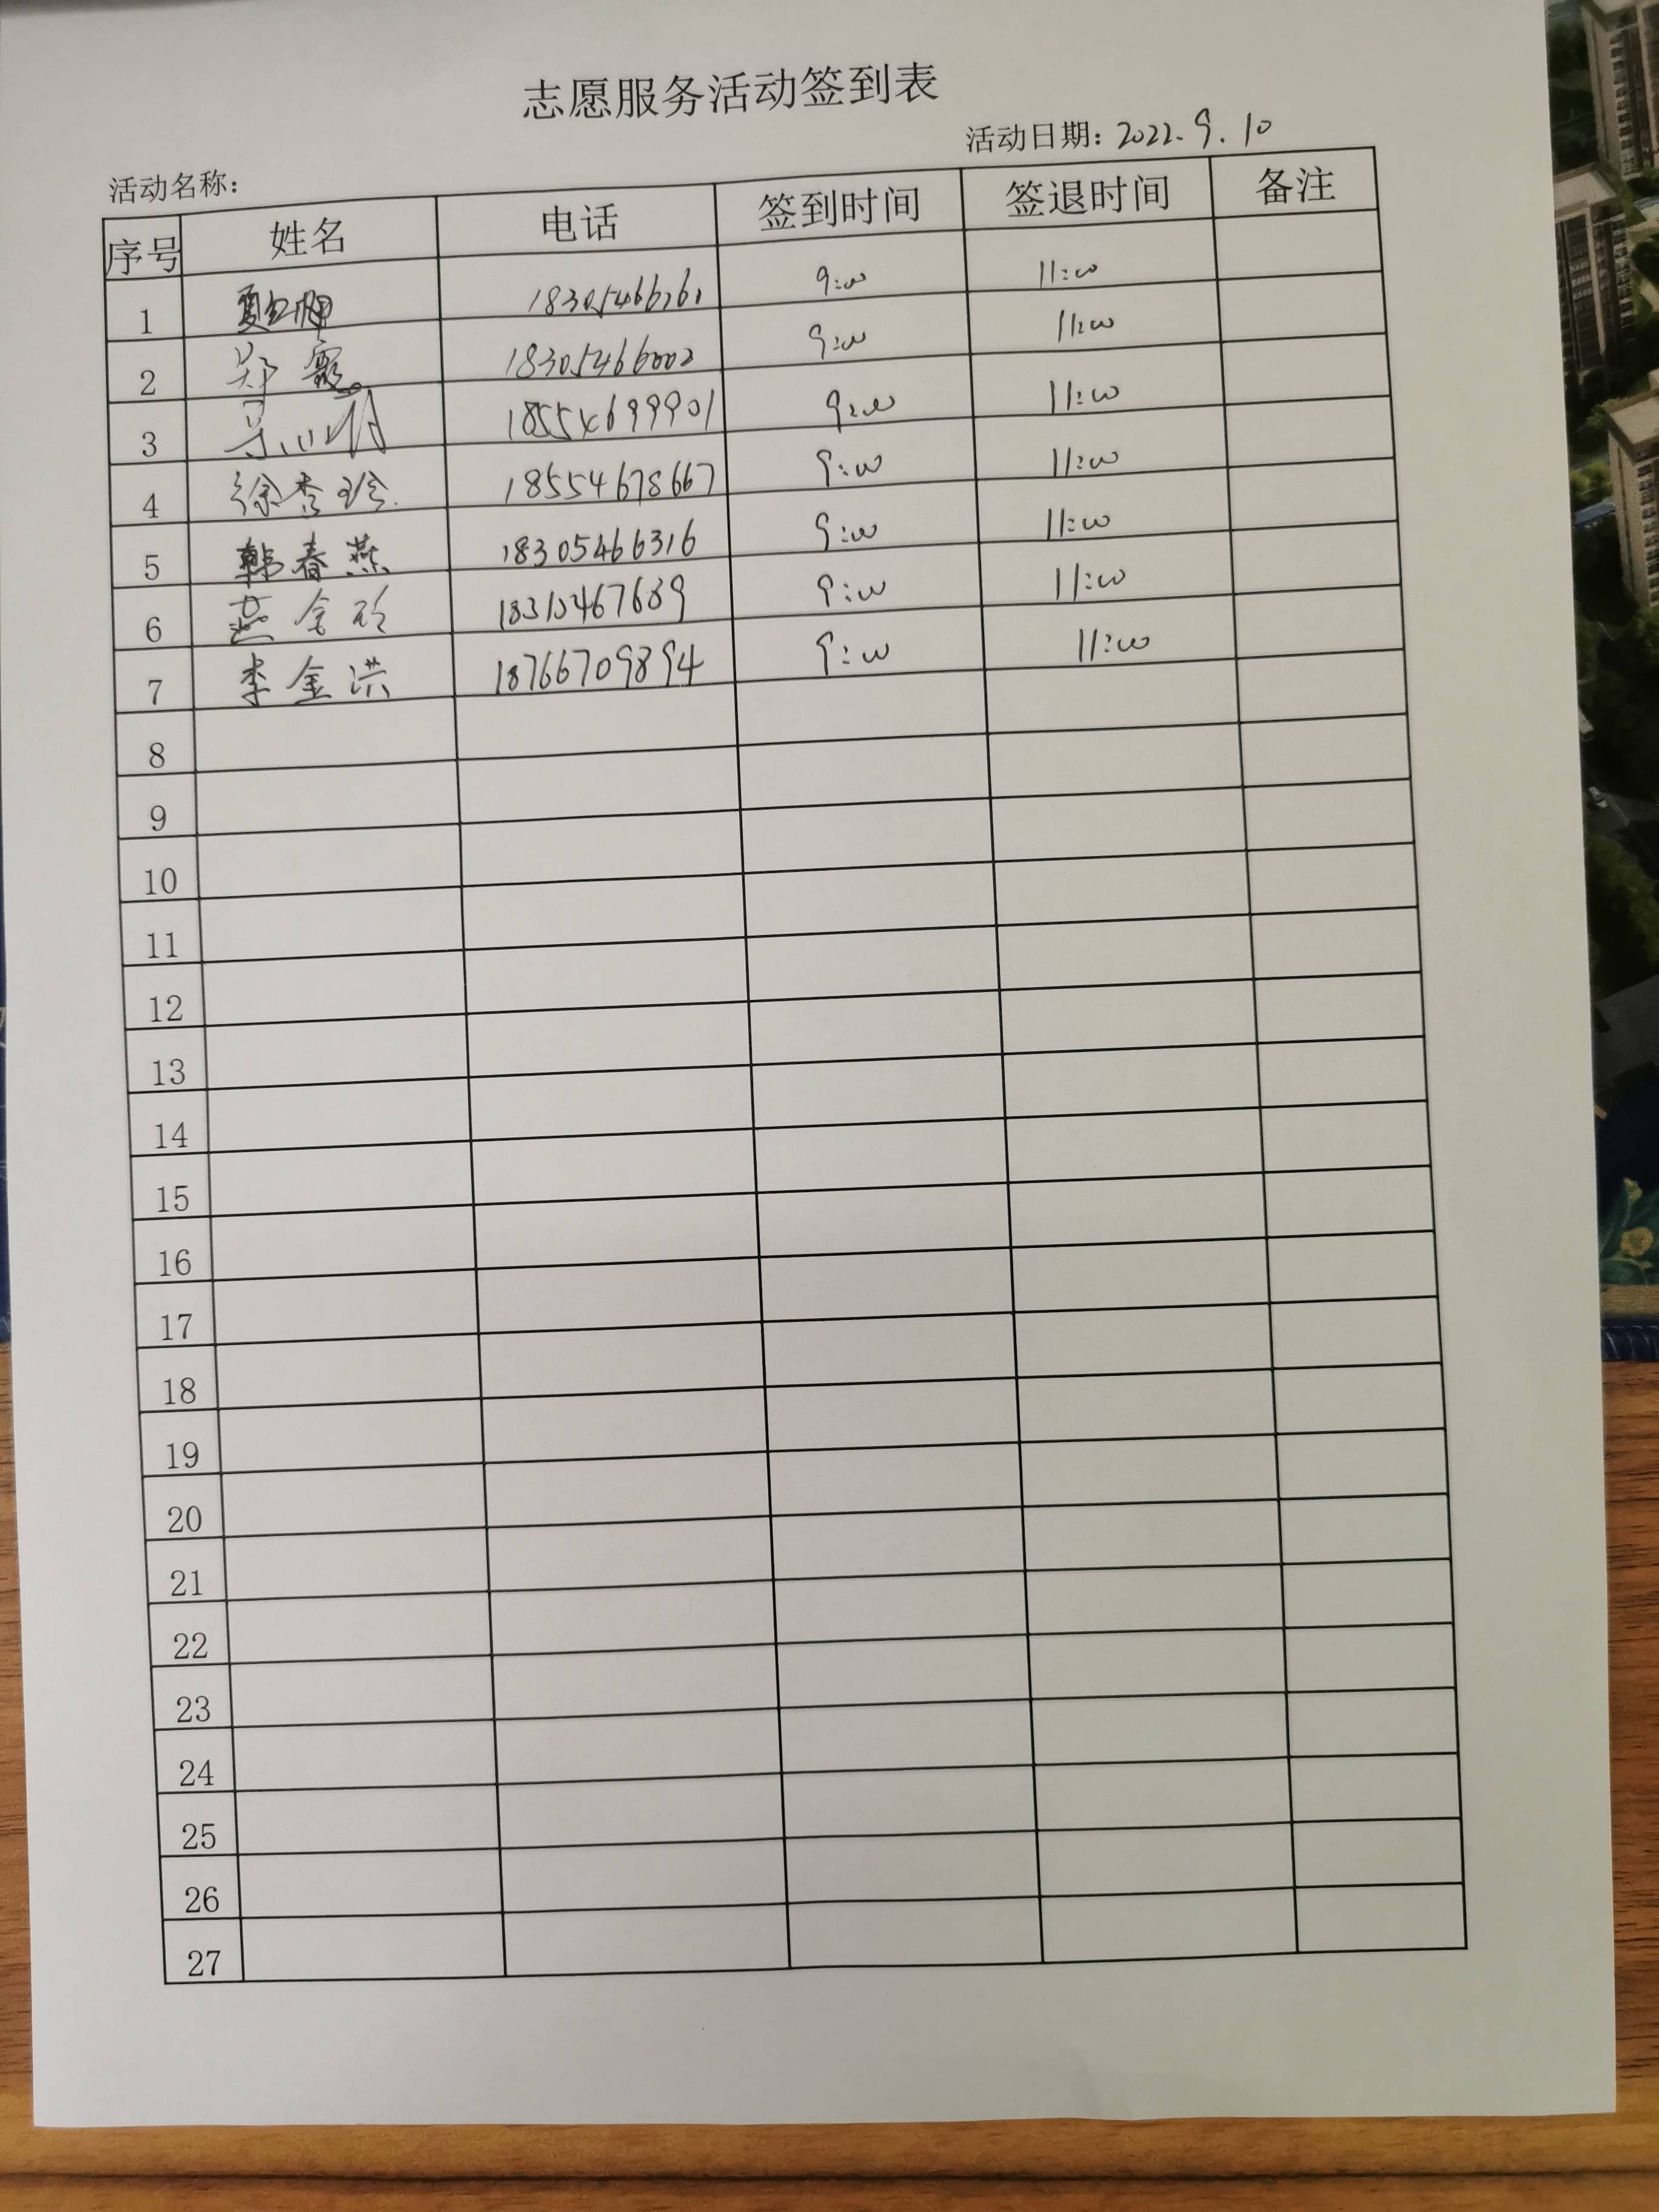 志愿服务活动签到表
活动日期：2022.9.10
活动名称：
序号 姓名 电话 签到时间 签退时间 备注
1 9:00 11:00
2 郑霞 18305466002 9:00 11:00
3 18554699901 9:00 11:00
4 徐秀玲 18554678667 9:00 11:00
5 韩春燕 18305466316 9:00 11:00
6 燕金 9:00 11:00
7 李金洪 18766709894 9:00 11:00
8
9
10
11
12
13
14
15
16
17
18
19
20
21
22
23
24
25
26
27